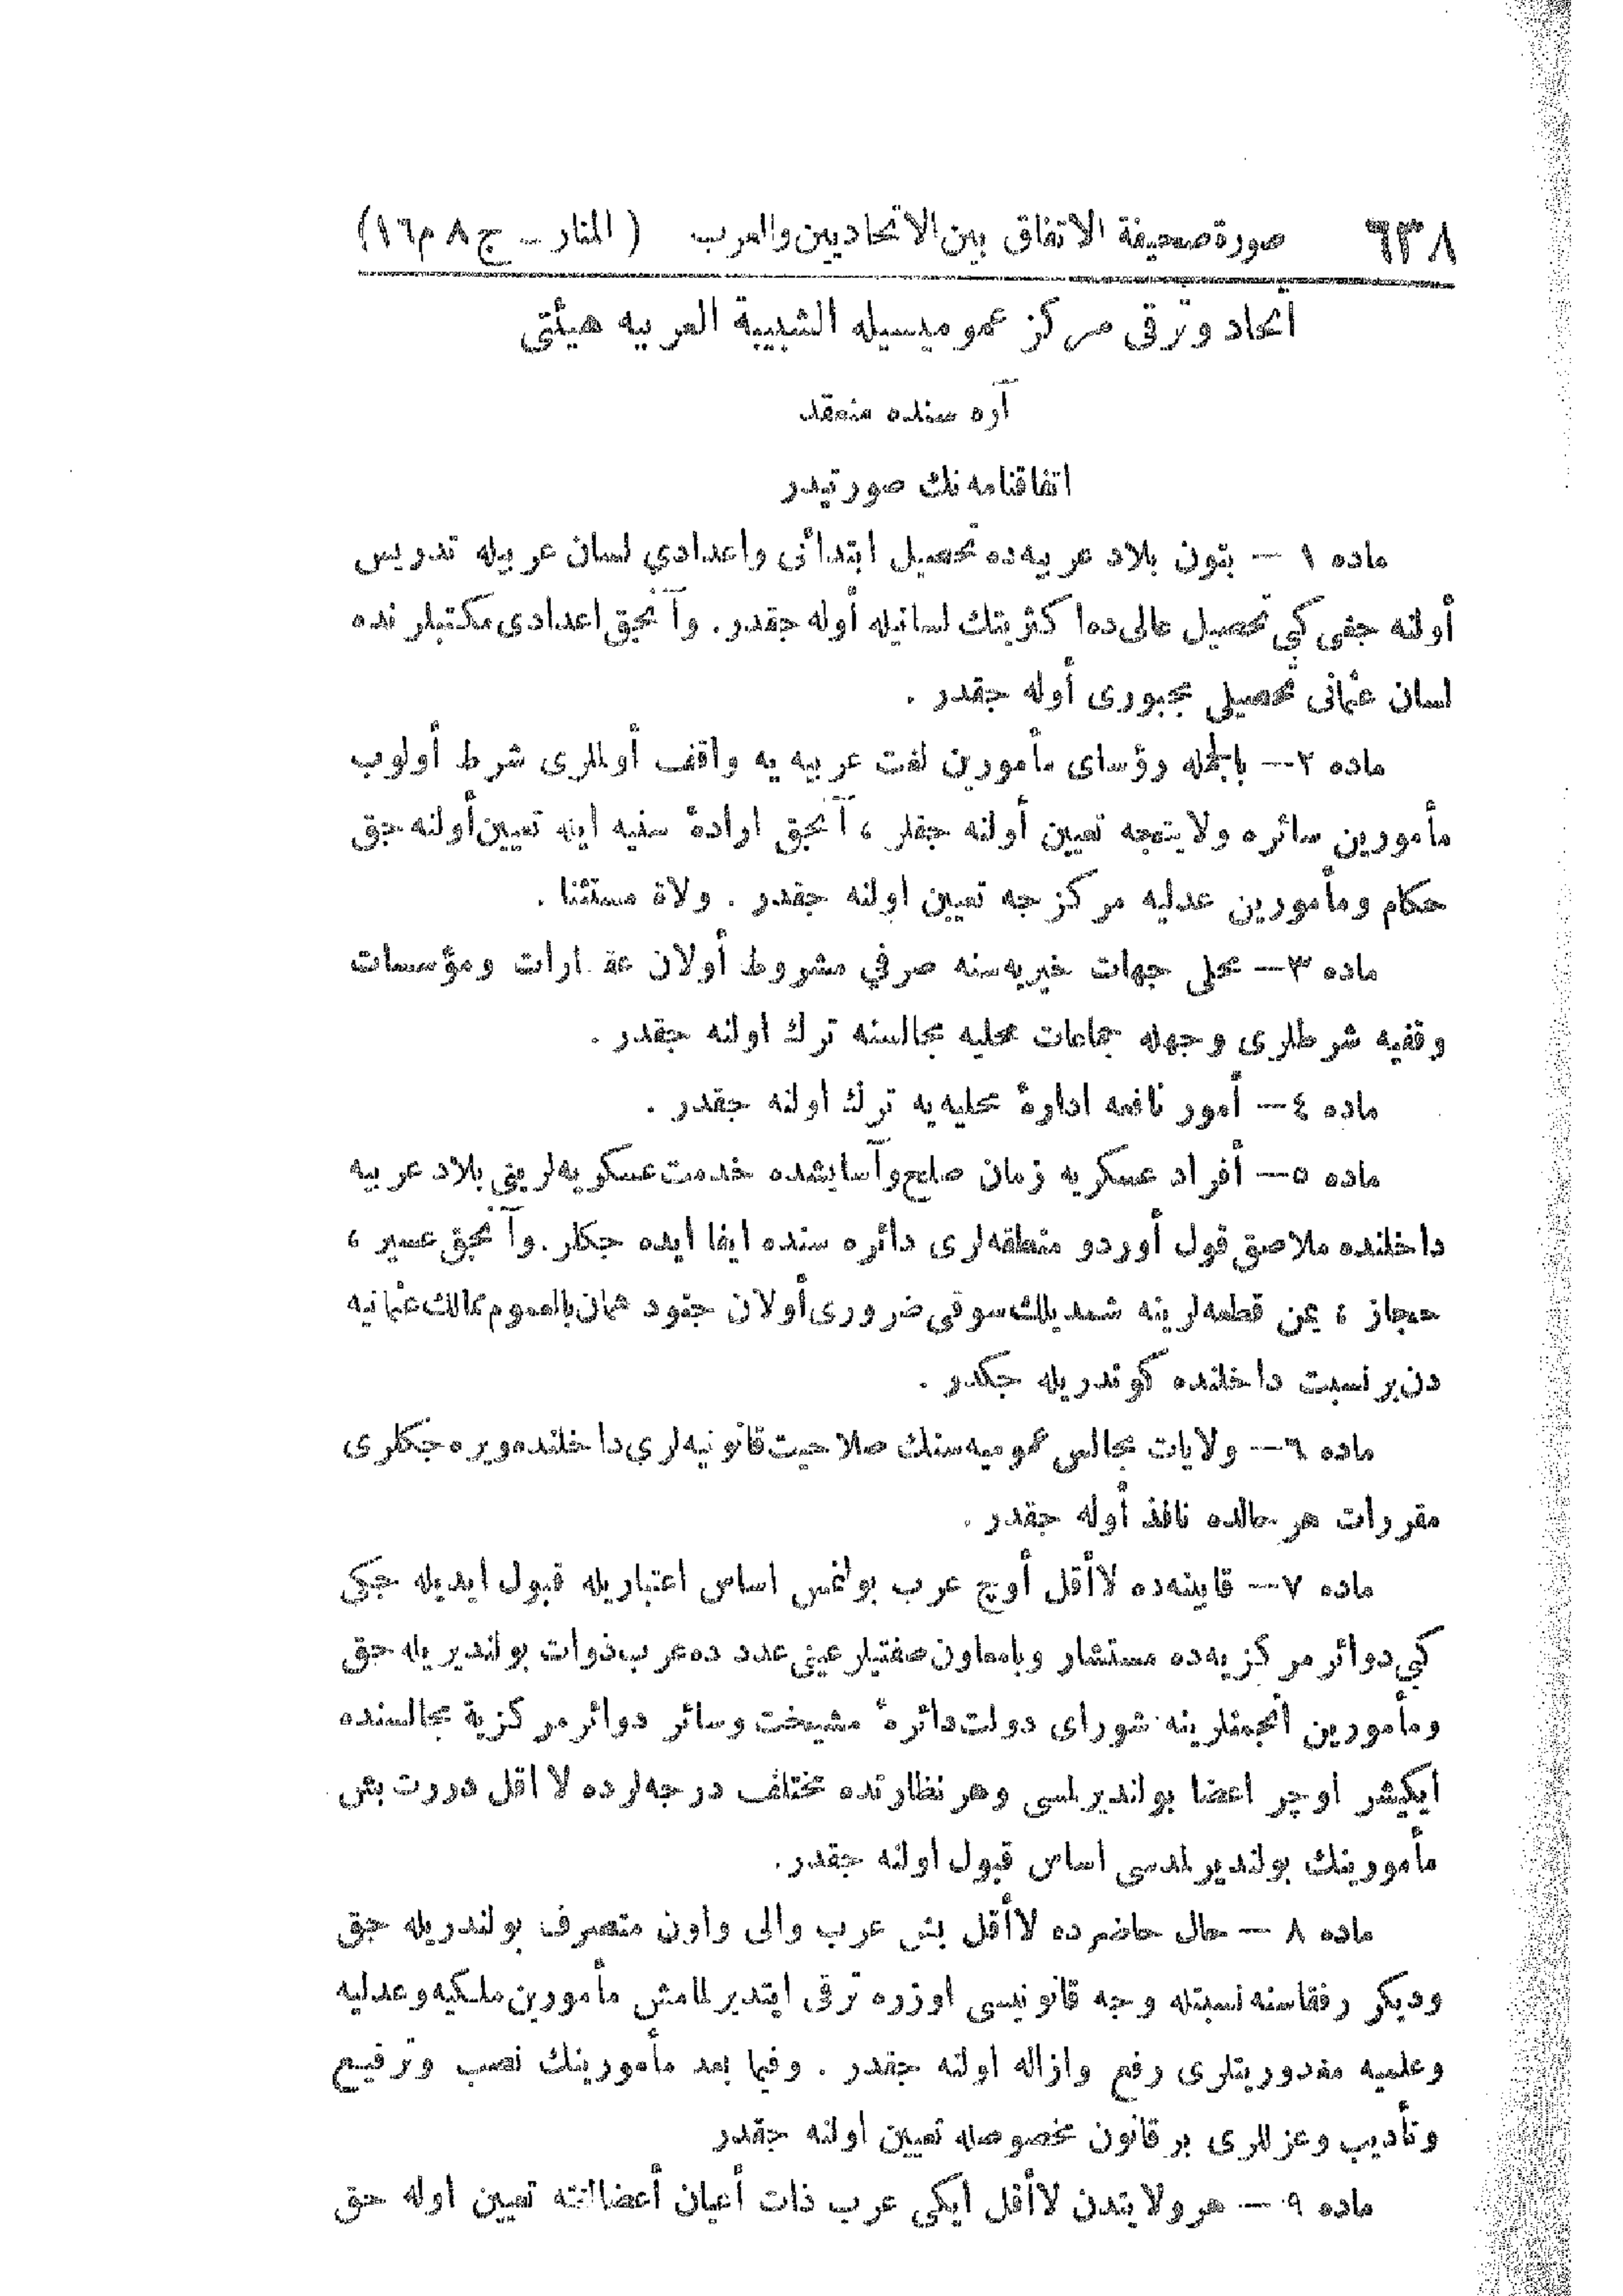 ٦٣٨ صورة صحيفة الاتفاق بين الاتحاديين والعرب ( المنار ــ ج ٨ م ١٦)
اتحاد وترقى مركز عموميسيله الشبيبة العربيه هيئتى
آره سنده منعقد
اتفاقنامه نك صورتيدر
ماده ١ — بتون بلاد عربيه ده تحصيل ابتدائى واعدادي لسان عربيله تدريس
أولنه جغى كي تحصيل عالى ده ا كثريتك لسانيله أوله جقدر. وآنجق اعدادى مكتبلرنده
لسان عثمانى تحصيلي مجبورى أوله جقدر .
ماده ٢ — بالجمله رؤساى مأمورين لغت عربيه يه واقف أولملرى شرط أولوب
مأمورين سائره ولايتجه تعيين أولنه جقلر ، آنجق ارادهٔ سنيه ايله تعيين أولنه جق
حكام ومأمورين عدليه مركزجه تعيين اولنه جقدر . ولاة مستثنا .
ماده ٣ — محلي جهات خيريه سنه صرفي مشروط أولان عقارات ومؤسسات
وقفيه شرطلرى وجهله جماعات محليه مجالسنه ترك اولنه جقدر .
ماده ٤ — أمور نافعه ادارهٔ محليه يه ترك اولنه جقدر .
ماده ٥ — أفراد عسكريه زمان صلح وآسايشده خدمت عسكريه لريني بلاد عربيه
داخلنده ملاصق قول أوردو منطقه لرى دائره سنده ايفا ايده جكلر. وآنجق عسير ،
حجاز ، يمن قطعه لرينه شمديلك سوقى ضرورى أولان جنود همان بالعموم ممالك عثمانيه
دن بر نسبت داخلنده كوندريله جكدر .
ماده ٦ — ولايات مجالس عموميه سنك صلاحيت قانونيه لري داخلنده ويره جكلرى
مقررات هر حالده نافذ أوله جقدر .
ماده ٧ — قابينه ده لا أقل أوچ عرب بولنمس اساس اعتباريله قبول ايديله جكى
كي دوائر مركزيه ده مستشار ويا معاون صفتيلر عيني عدد ده عرب ذوات بولنديريله جق
ومأمورين أنجمنلرينه شوراى دولت دائرهٔ مشيخت وسائر دوائر مركزية مجالسنده
ايكيشر اوچر اعضا بولنديرلسى وهر نظارتده مختلف درجه لرده لا اقل دررت بش
مأمورينك بولنديرلمدسى اساس قبول اولنه جقدر.
ماده ٨ — حال حاضرده لا أقل بش عرب والى واون متصرف بولندريله جق
وديكر رفقاسنه نسبتله وجه قانونيسى اوزره ترقى ايتديرلمامش مأمورين ملكيه وعدليه
وعلميه مغدوريتلرى رفع وازاله اولنه جقدر . وفيما بعد مأمورينك نصب وترفيع
وتأديب وعزللرى بر قانون مخصوصله تعيين اولنه جقدر
ماده ٩ — هر ولايتدن لا أقل ايكى عرب ذات أعيان أعضالغنه تعيين اوله جق